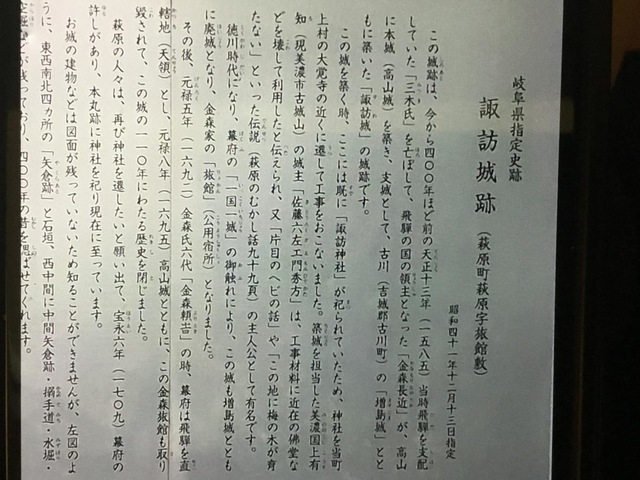 岐阜県指定史跡
諏訪城跡（萩原町萩原字旅館敷）
昭和四十一年十二月十三日指定
この城跡は、今から四〇〇年ほど前の天正十三年（一五八五）当時飛騨を支配
していた「三木氏」を亡ぼして、飛騨の国の領主となった「金森長近」が、高山
に本城（高山城）を築き、支城として、古川（吉城郡古川町）の「増島城」とと
もに築いた「諏訪城」の城跡です。
この城を築く時、ここには既に「諏訪神社」が祀られていたため、神社を当町
上村の大覚寺の近くに遷して工事をおこないました。築城を担当した美濃国上有
知（現美濃市古城山）の城主「佐藤六左エ門秀方」は、工事材料に近在の佛堂な
どを壊して利用したと伝えられ、又「片目のヘビの話」や「この地に梅の木が育
たない」といった伝説（萩原のむかし話九十九頁）の主人公として有名です。
徳川時代になり、幕府の「一国一城」の御触れにより、この城も増島城ととも
に廃城となり、金森家の「旅館」（公用宿所）となりました。
その後、元禄五年（一六九二）金森氏六代「金森頼旹」の時、幕府は飛騨を直
轄地（天領）とし、元禄八年（一六九五）高山城とともに、この金森旅館も取り
毀されて、この城の一一〇年にわたる歴史を閉じました。
萩原の人々は、再び神社を遷したいと願い出て、宝永六年（一七〇九）幕府の
許しがあり、本丸跡に神社を祀り現在に至っています。
お城の建物などは図面が残っていないため知ることができませんが、左図のよ
うに、東西南北四ヵ所の「矢倉跡」と石垣、西中間に中間矢倉跡・搦手道・水堀・
空堀などが残っており、四〇〇年の昔を偲ばせてくれます。